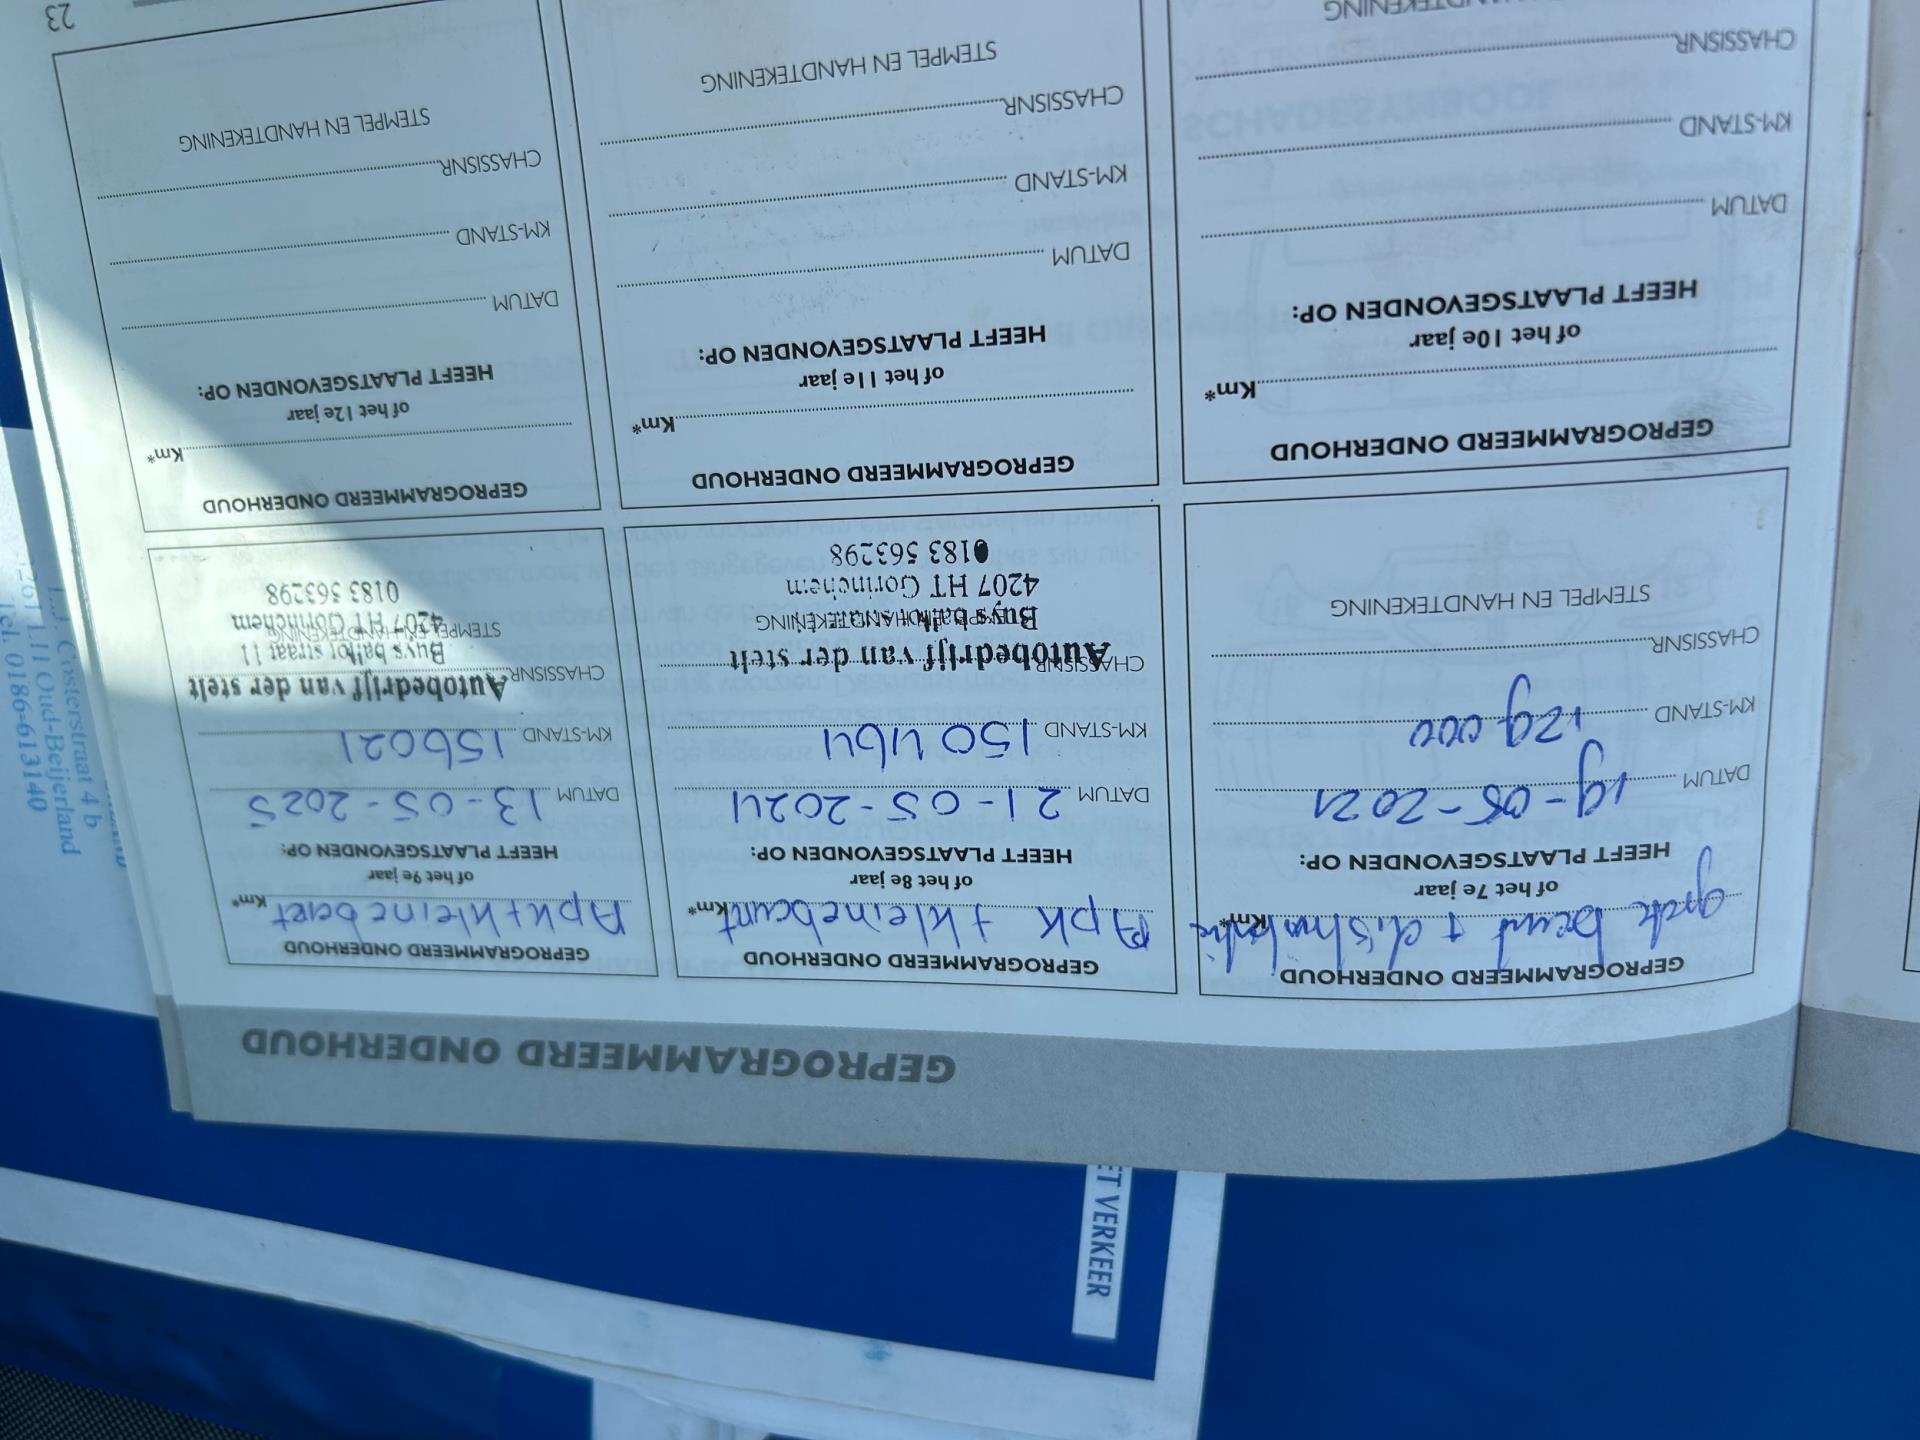 GEPROGRAMMEERD ONDERHOUD
GEPROGRAMMEERD ONDERHOUD
beurt +
Km*
of het 7e jaar
HEEFT PLAATSGEVONDEN OP:
DATUM 19-05-2021
KM-STAND 129.000
CHASSISNR.
STEMPEL EN HANDTEKENING
GEPROGRAMMEERD ONDERHOUD
Apk + kleine beurt Km*
of het 8e jaar
HEEFT PLAATSGEVONDEN OP:
DATUM 21-05-2024
KM-STAND 150464
CHASSISNR.
Autobedrijf van der stelt
STEMPEL EN HANDTEKENING
Buys
4207 HT Gorinchem
0183 563298
GEPROGRAMMEERD ONDERHOUD
Apk + kleine beurt Km*
of het 9e jaar
HEEFT PLAATSGEVONDEN OP:
DATUM 13-05-2025
KM-STAND 156021
CHASSISNR.
Autobedrijf van der stelt
Buys straat 11
STEMPEL EN HANDTEKENING
4207 HT Gorinchem
0183 563298
GEPROGRAMMEERD ONDERHOUD
Km*
of het 10e jaar
HEEFT PLAATSGEVONDEN OP:
DATUM
KM-STAND
CHASSISNR.
HANDTEKENING
GEPROGRAMMEERD ONDERHOUD
Km*
of het 11e jaar
HEEFT PLAATSGEVONDEN OP:
DATUM
KM-STAND
CHASSISNR.
STEMPEL EN HANDTEKENING
GEPROGRAMMEERD ONDERHOUD
Km*
of het 12e jaar
HEEFT PLAATSGEVONDEN OP:
DATUM
KM-STAND
CHASSISNR.
STEMPEL EN HANDTEKENING
23
ET VERKEER
Oosterstraat 4 b
Oud-Beijerland
Tel. 0186-613140